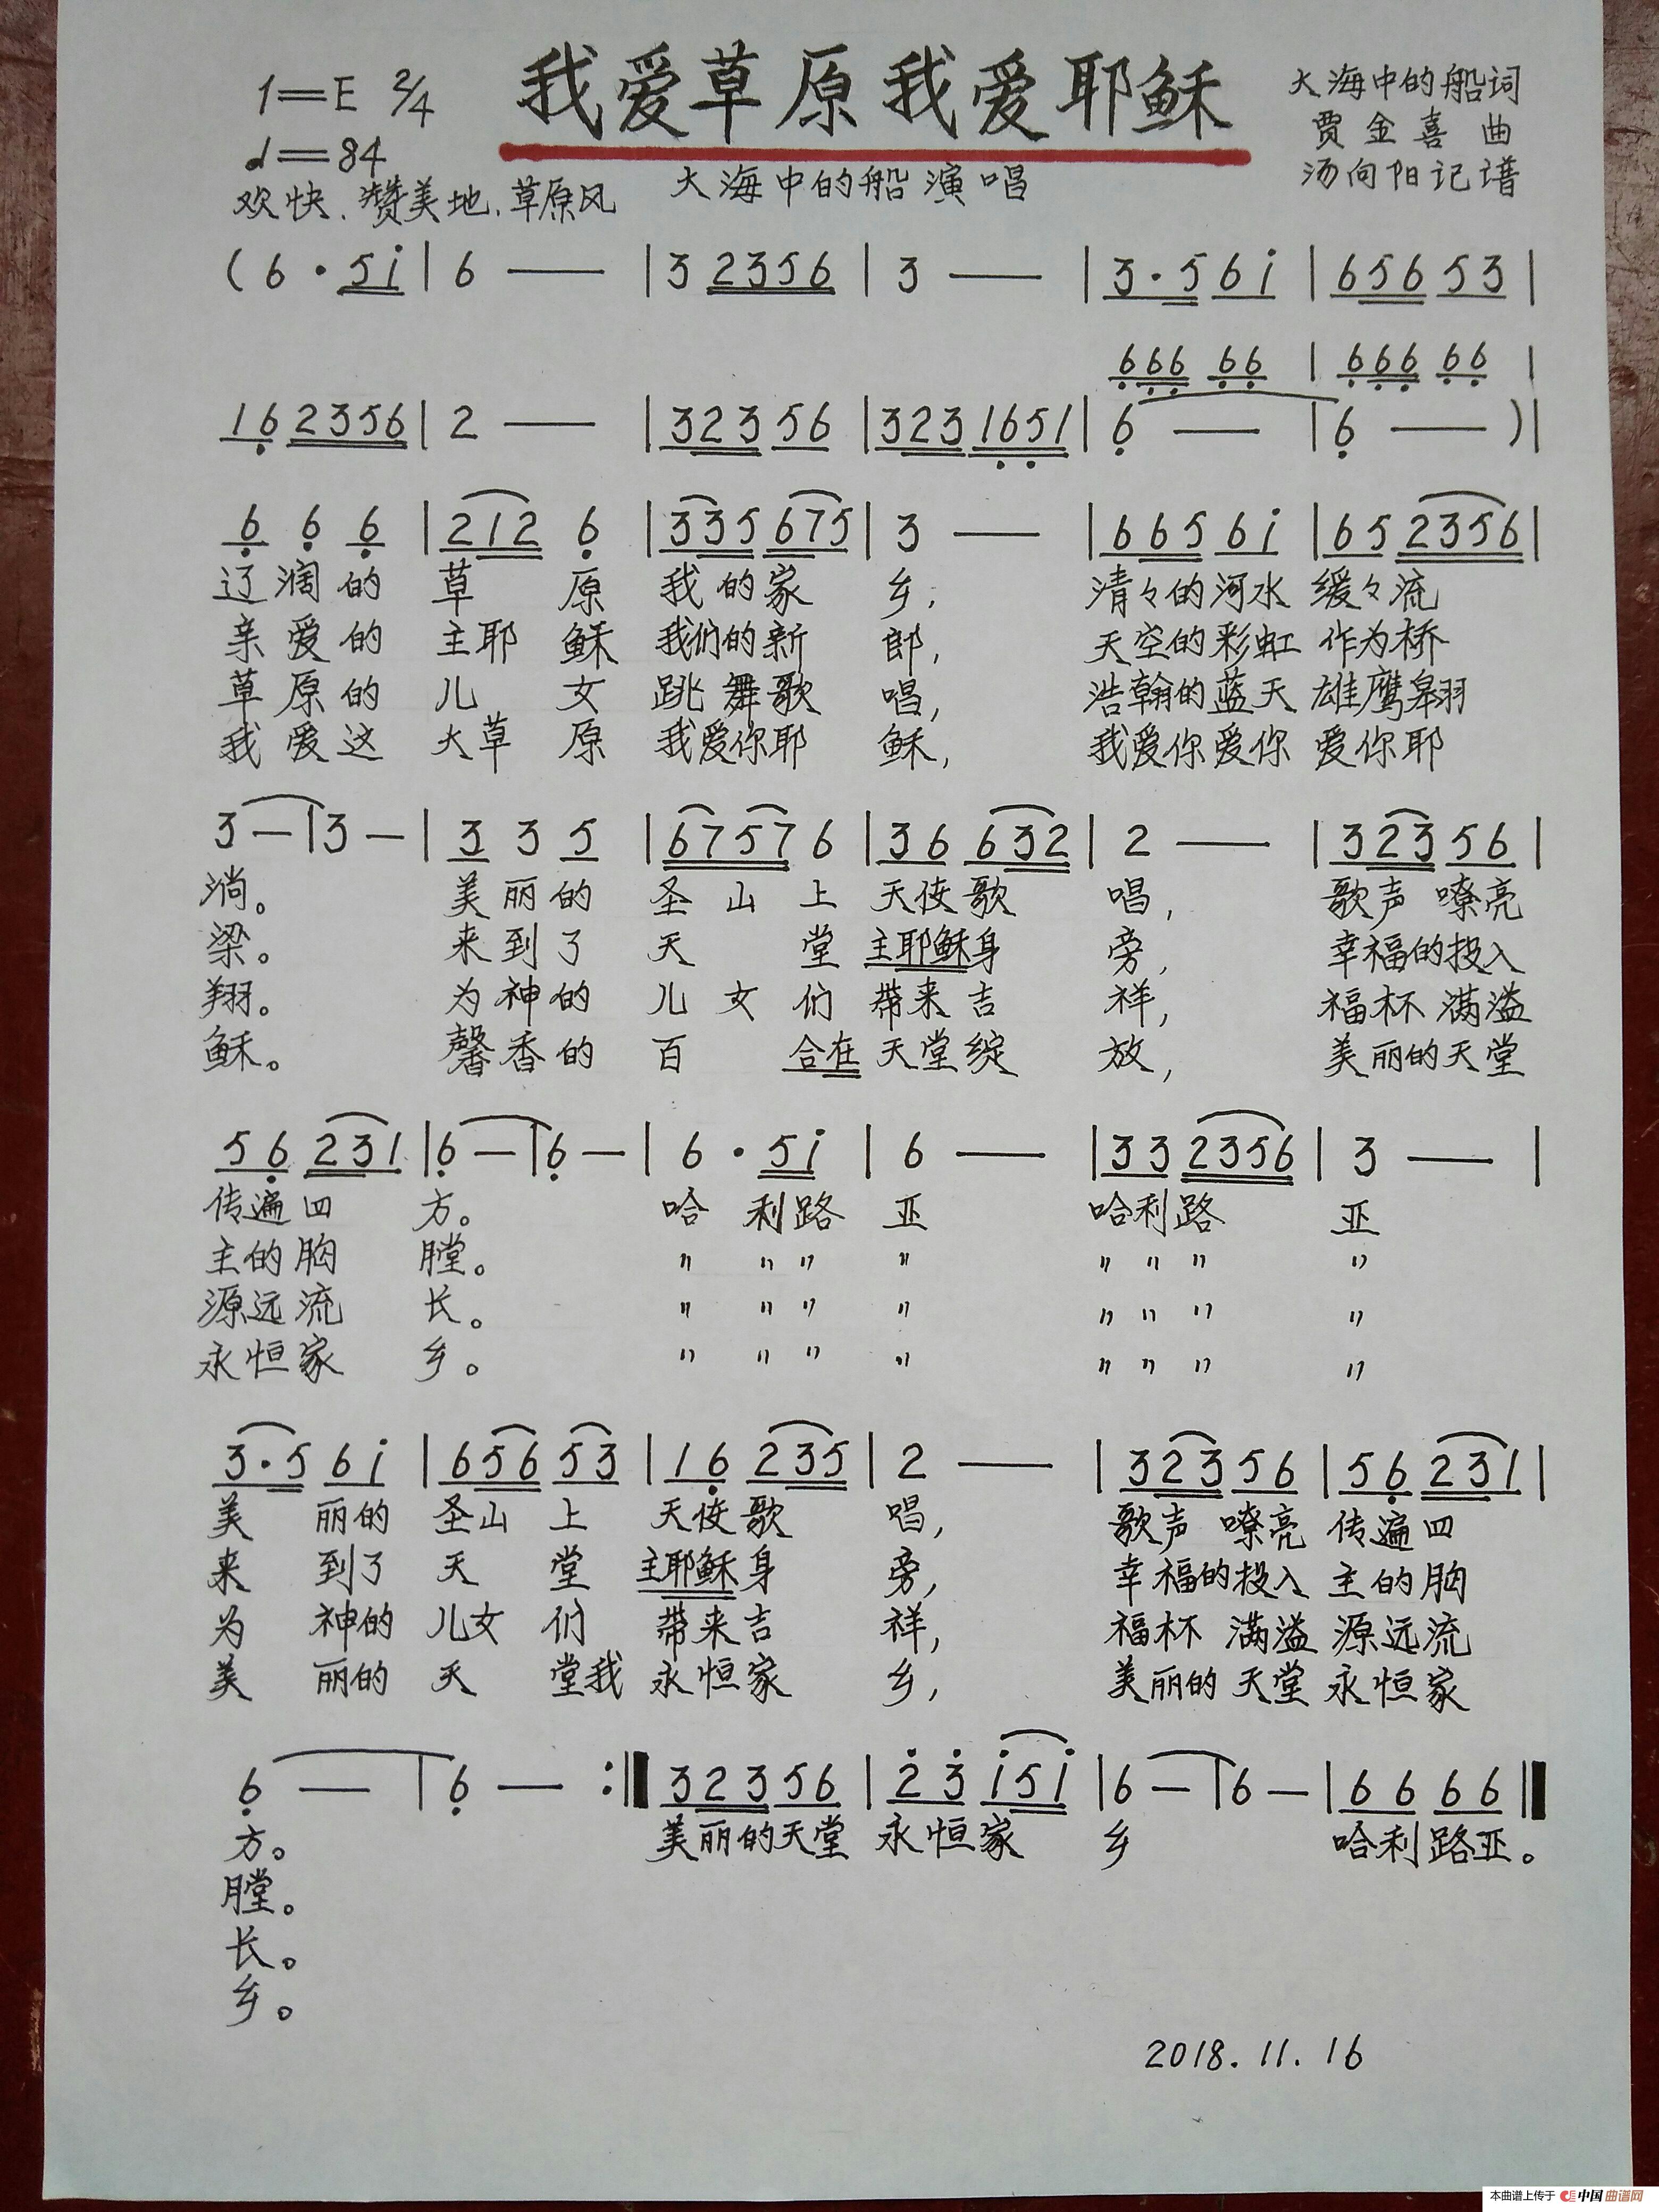 1=E 2/4
我爱草原我爱耶稣
大海中的船词
♩=84
贾金喜曲
欢快、赞美地、草原风
大海中的船演唱
汤向阳记谱
(6·5i|6—|3 2356|3—|3·5 6i|656 53|
666 66|666 66|
16 2356|2—|323 56|323 1651|6—|6—)|
6 6 6|212 6|335 675|3—|665 6i|65 2356|
辽阔的草原我的家乡,清々的河水缓々流
亲爱的主耶稣我们的新郎,天空的彩虹作为桥
草原的儿女跳舞歌唱,浩翰的蓝天雄鹰翱
我爱这大草原我爱你耶稣,我爱你爱你爱你耶
3—|3—|3 3 5|6757 6|36 632|2—|323 56|
淌。美丽的圣山上天使歌唱,歌声嘹亮
梁。来到了天堂主耶稣身旁,幸福的投入
翔。为神的儿女们带来吉祥,福杯满溢
稣。馨香的百合在天堂绽放,美丽的天堂
56 231|6—|6—|6·5i|6—|33 2356|3—|
传遍四方。哈利路亚哈利路亚
主的胸膛。〃〃〃〃〃〃〃〃
源远流长。〃〃〃〃〃〃〃〃
永恒家乡。〃〃〃〃〃〃〃〃
3·5 6i|656 53|16 235|2—|323 56|56 231|
美丽的圣山上天使歌唱,歌声嘹亮传遍四
来到了天堂主耶稣身旁,幸福的投入主的胸
为神的儿女们带来吉祥,福杯满溢源远流
美丽的天堂我永恒家乡,美丽的天堂永恒家
6—|6—:‖323 56|23 i5i|6—|6—|66 66‖
方。美丽的天堂永恒家乡哈利路亚。
膛。
长。
乡。
2018.11.16
本曲谱上传于 中国曲谱网